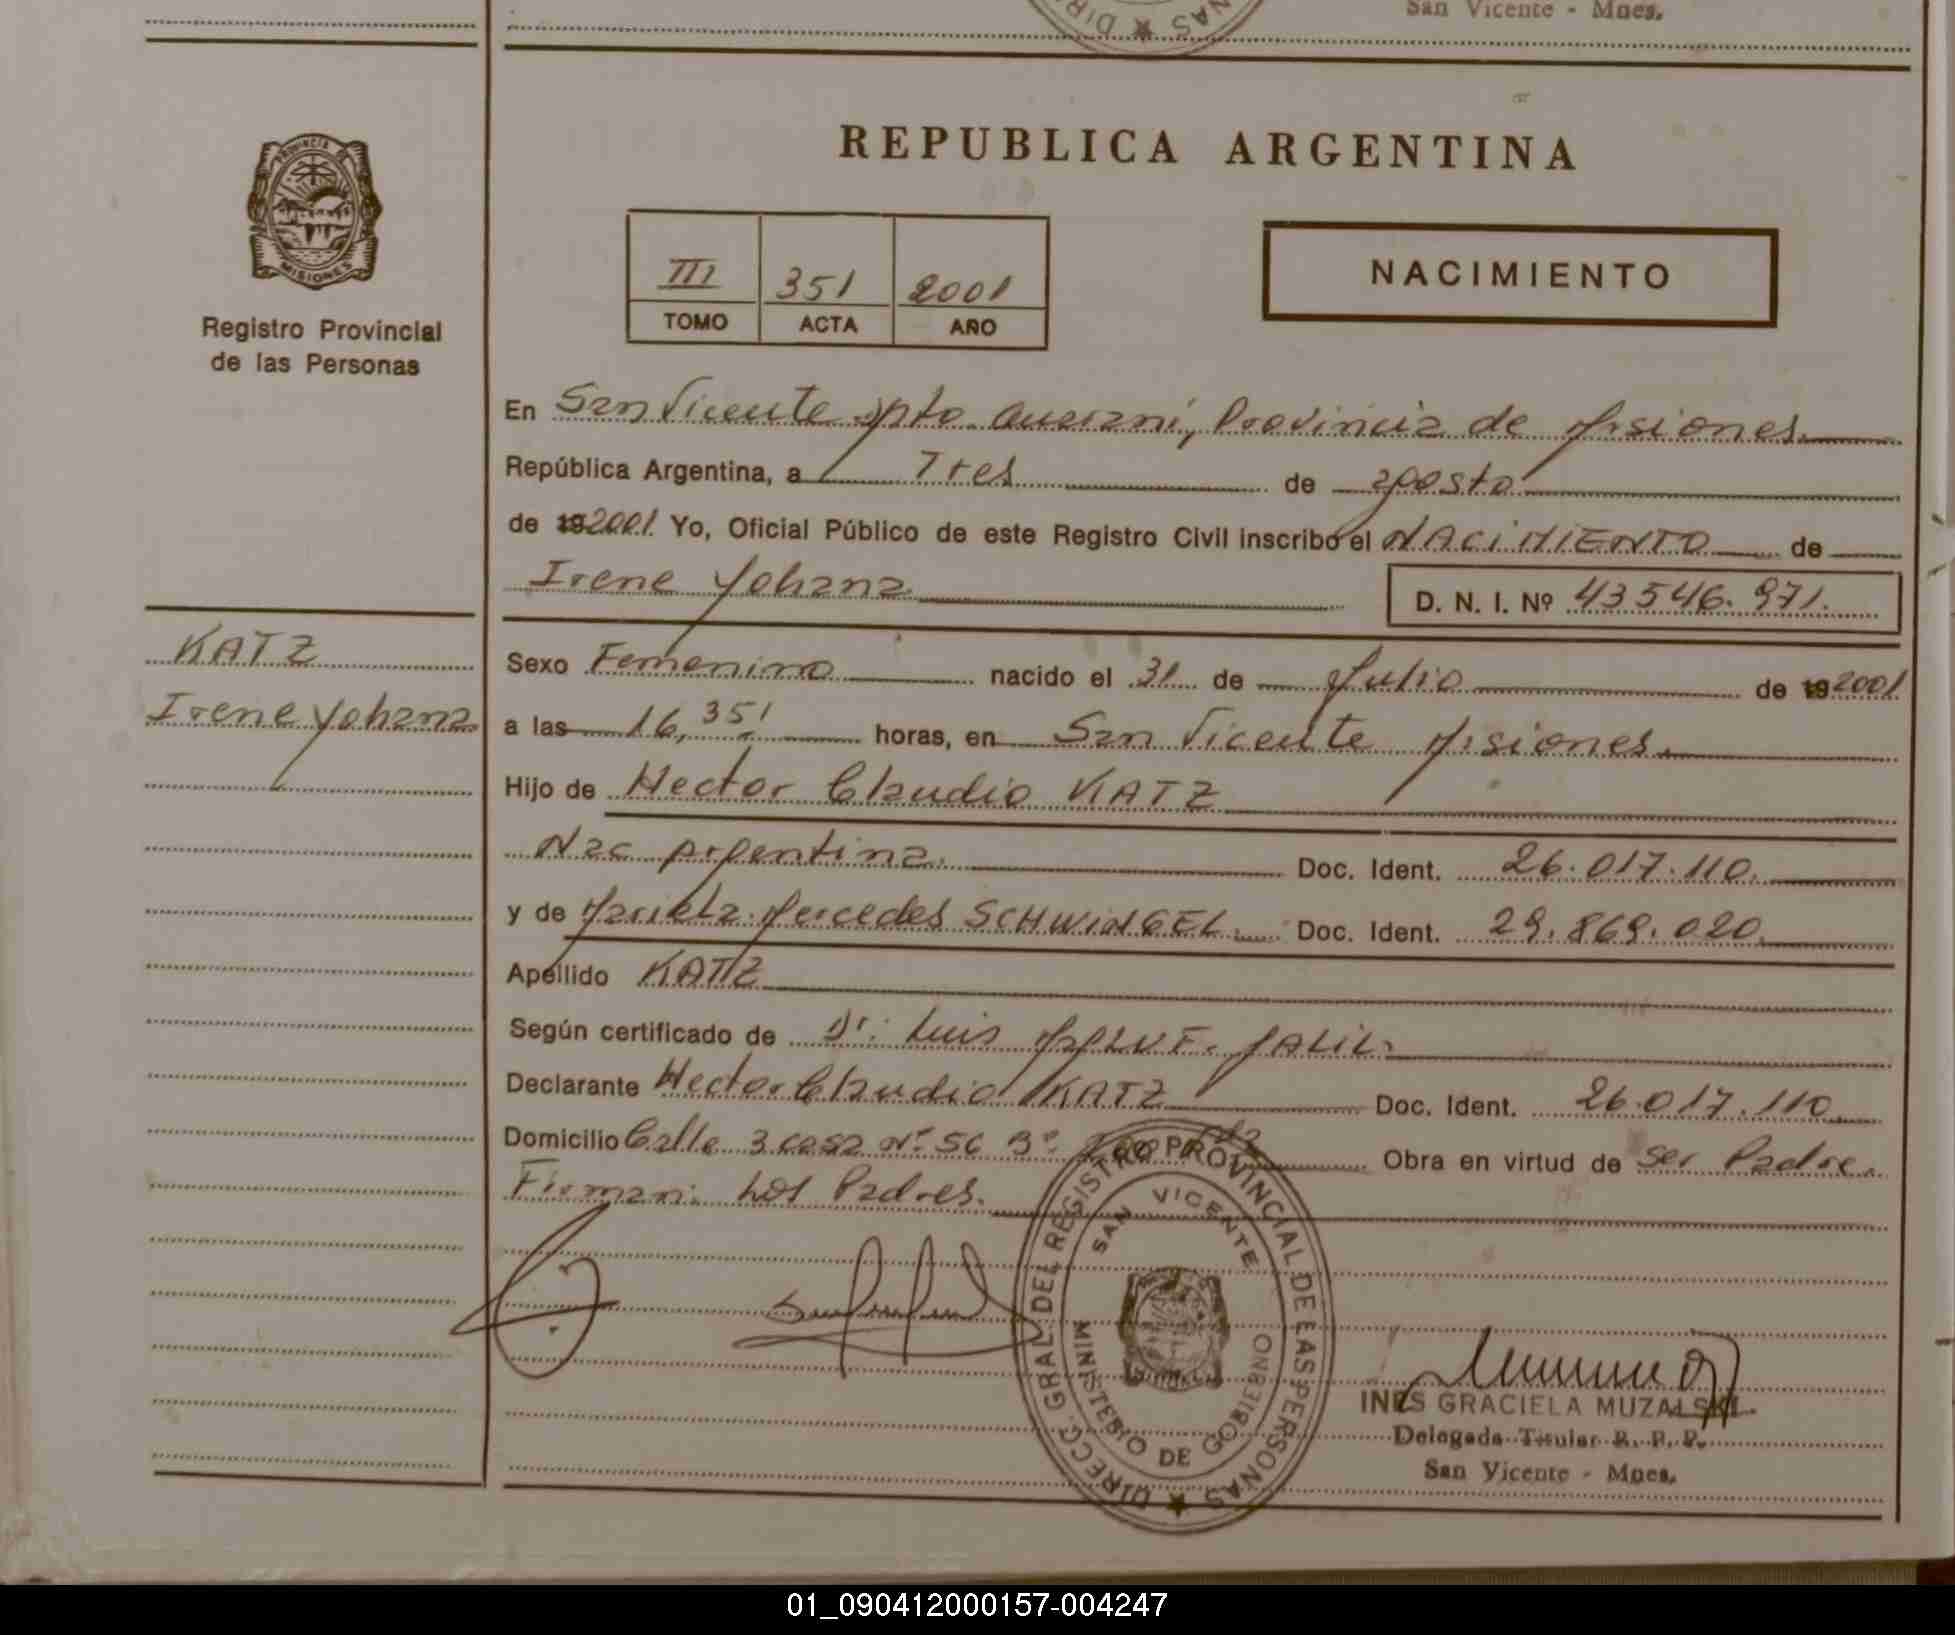 San Vicente - Mnes.
REPUBLICA ARGENTINA
PROVINCIA DE
MISIONES
Registro Provincial
de las Personas
III 351 2001
TOMO ACTA AÑO
NACIMIENTO
En San Vicente Dpto. Guaraní, Provincia de Misiones.
República Argentina, a Tres de agosto
de 19 2001. Yo, Oficial Público de este Registro Civil inscribo el NACIMIENTO de
Irene Yohana D. N. I. Nº 43546.971.
KATZ
Irene Yohana
Sexo Femenino nacido el 31 de Julio de 19 2001
a las 16,35 horas, en San Vicente Misiones.
Hijo de Hector Claudio KATZ
Nac Argentina. Doc. Ident. 26.017.110.
y de Mariela Mercedes SCHWINGEL. Doc. Ident. 29.869.020
Apellido KATZ
Según certificado de Dr. Luis JALIL.
Declarante Hector Claudio KATZ Doc. Ident. 26.017.110
Domicilio Calle 3 casa Nº 56 Bº Obra en virtud de Ser Padre.
Firman: Los Padres.
DIRECC. GRAL. DEL REGISTRO PROVINCIAL DE LAS PERSONAS
SAN VICENTE
MINISTERIO DE GOBIERNO
INES GRACIELA MUZALSKI
Delegada Titular R. P. P.
San Vicente - Mnes.
01_090412000157-004247